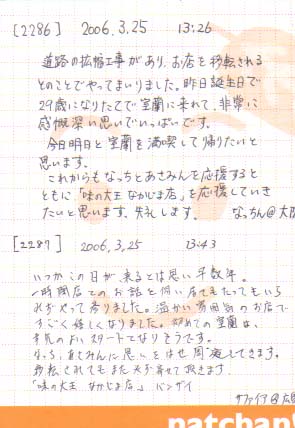 [2286] 2006.3.25 13:26
道路の拡幅工事があり、お店を移転される
とのことでやってまいりました。昨日誕生日で
29歳になりたてで室蘭に来れて、非常に
感慨深い思いでいっぱいです。
今日明日と室蘭を満喫して帰りたいと
思います。
これからもなっちとあさみんを応援すると
ともに「味の大王 なかじま店」を応援していき
たいと思います。失礼します。 なっちん@大阪
[2287] 2006.3.25 13:43
いつかこの日が、来るとは思い 数年。
一時閉店とのお話を伺い居てもたってもいら
れずやって参りました。温かい雰囲気のお店で
すごく嬉しくなりました。初めての室蘭は、
幸先のよいスタートになりそうです。
なっち、あさみんに思いをはせ 周遊してきます。
移転されてもまた 寄せて頂きます。
「味の大王 なかじま店」 バンザイ
サファイア@広島
natchan